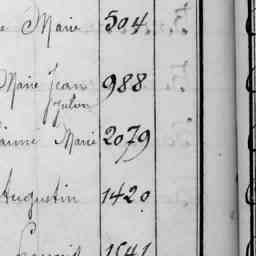 e Marie 504
Marie Jean 988
Julien
Marie 2079
Augustin 1420
1541